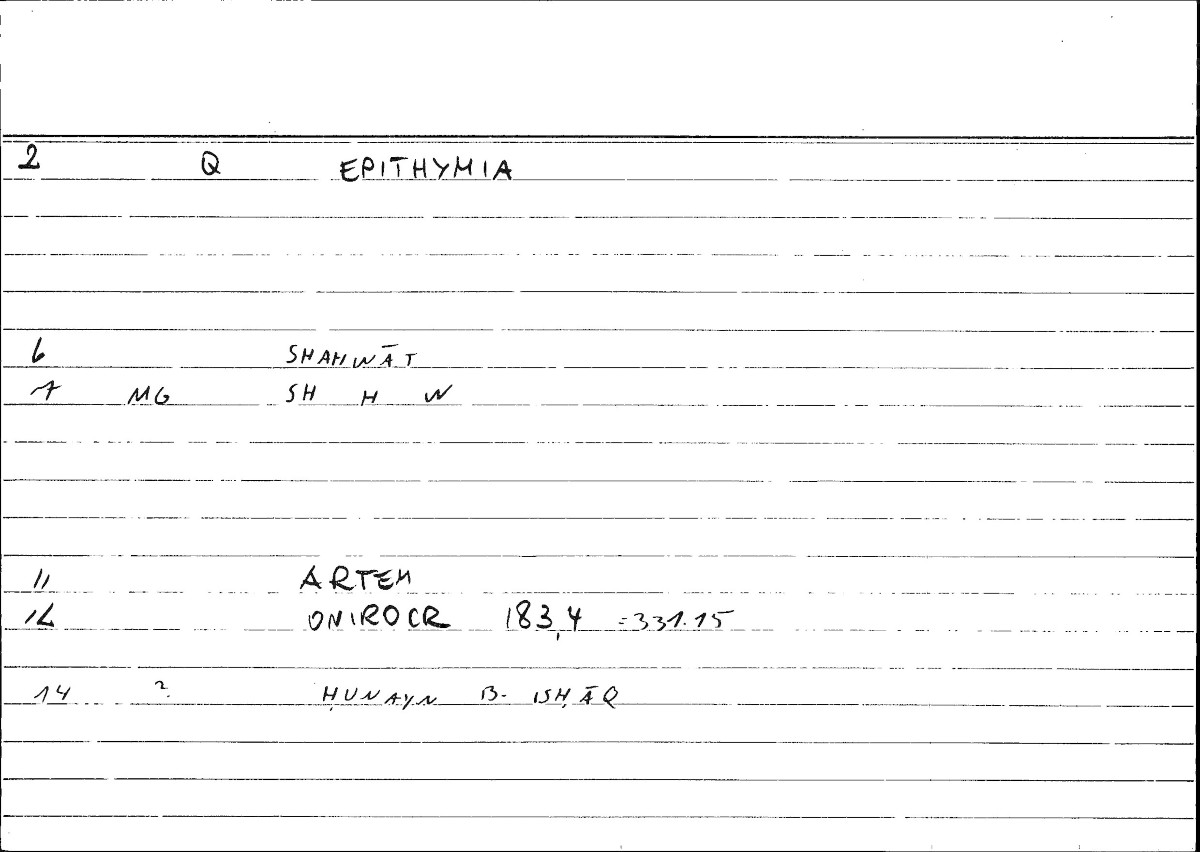 2 Q EPITHYMIA
6 SHAHWĀT
7 MG SH H W
11 ARTEM
12 ONIROCR 183,4 =331.15
14 ? ḤUNAYN B. ISḤĀQ